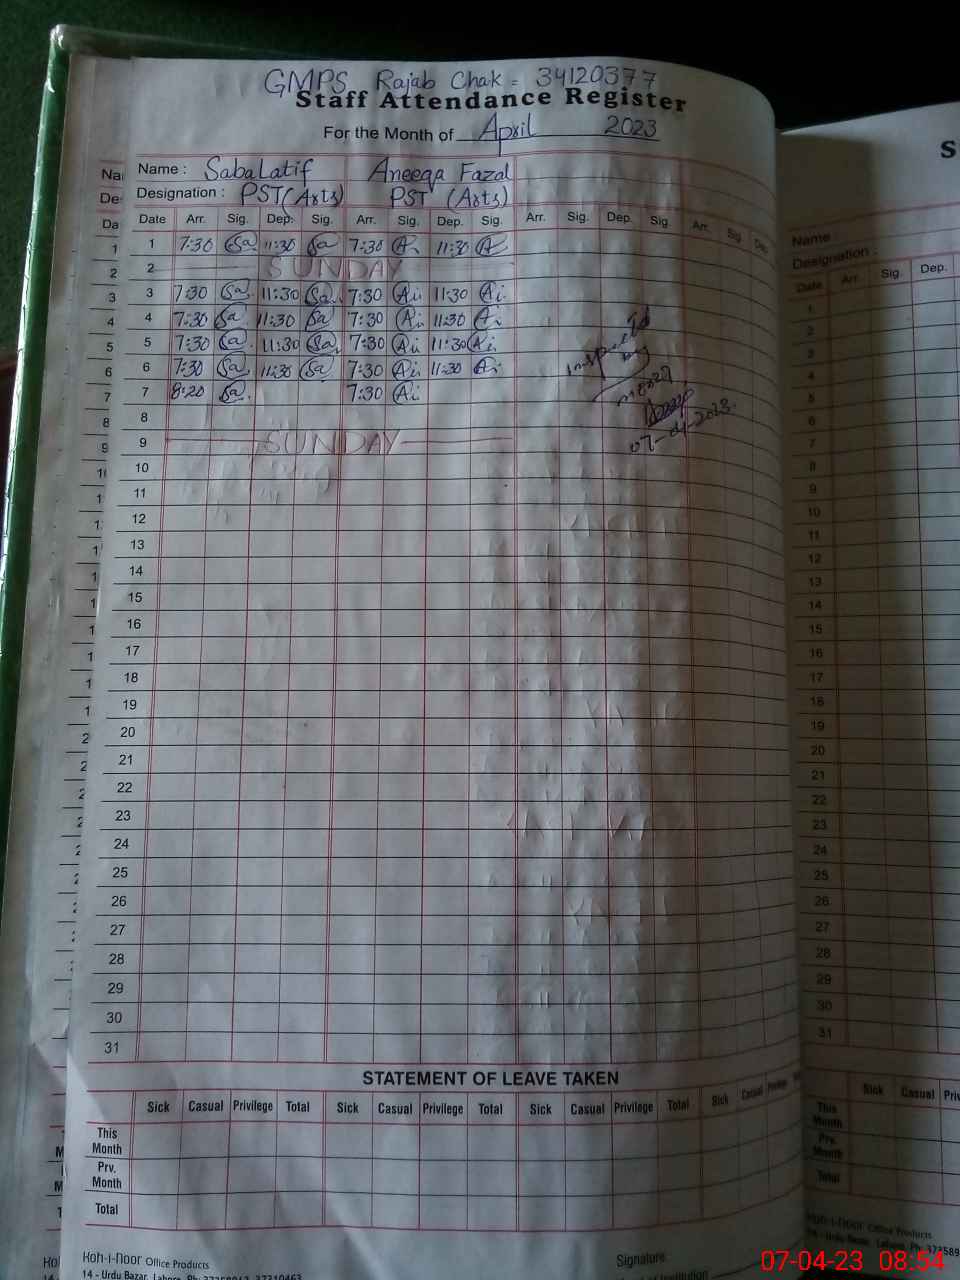 GMPS Rajab Chak = 34120377
Staff Attendance Register
For the Month of April 2023
Name : Saba Latif Aneeqa Fazal
Designation : PST (Arts) PST (Arts)
Date Arr. Sig. Dep. Sig. Arr. Sig. Dep. Sig. Arr. Sig. Dep. Sig. Arr. Sig. Dep.
1 7:30 Sa 11:30 Sa 7:30 A 11:30 A
2 SUNDAY
3 7:30 Sa 11:30 Sa 7:30 Ai 11:30 Ai
4 7:30 Sa 11:30 Sa 7:30 Ai 11:30 Ai
5 7:30 Sa 11:30 Sa 7:30 Ai 11:30 Ai
6 7:30 Sa 11:30 Sa 7:30 Ai 11:30 Ai
7 8:20 Sa 7:30 Ai
8
9 SUNDAY
10
11
12
13
14
15
16
17
18
19
20
21
22
23
24
25
26
27
28
29
30
31
Inspected
by
07-04-2023.
STATEMENT OF LEAVE TAKEN
Sick Casual Privilege Total Sick Casual Privilege Total Sick Casual Privilege Total Sick Casual Privilege
This Month
Prv. Month
Total
Koh-i-noor Office Products
14 - Urdu Bazar, Lahore.
Signature:
S
Name
Designation :
Date Arr. Sig. Dep.
1
2
3
4
5
6
7
8
9
10
11
12
13
14
15
16
17
18
19
20
21
22
23
24
25
26
27
28
29
30
31
Sick Casual
This Month
Prv. Month
Total
Koh-i-noor Office Products
07-04-23 08:54